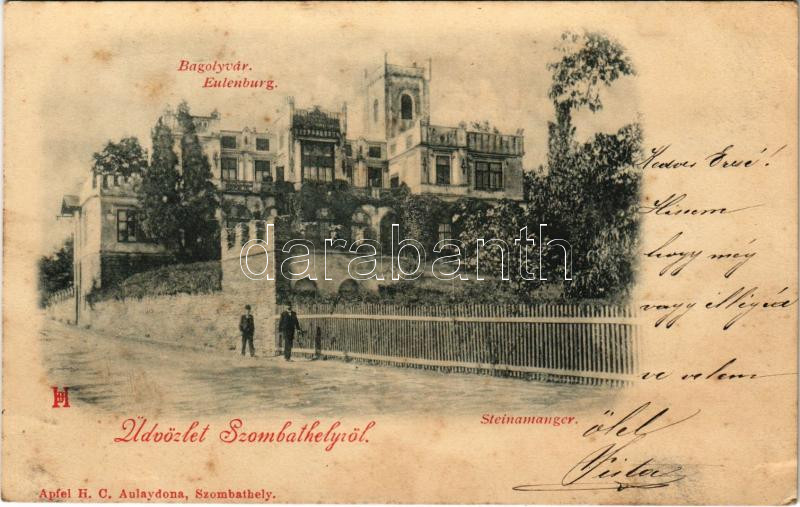 Bagolyvár.
Eulenburg.
Kedves Erzsé!
Hiszem
hogy még
vagy
ve velem
ölel
darabanth.com
Steinamanger.
Üdvözlet Szombathelyről.
Apfel H. C. Aulaydona, Szombathely.